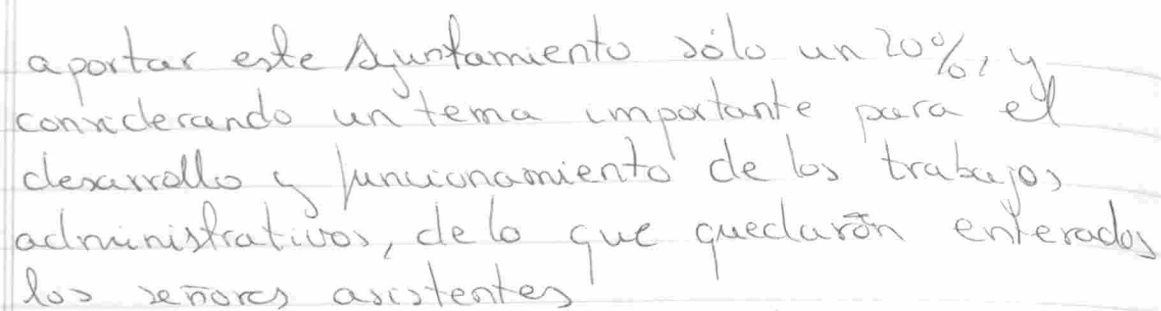 aportar este Ayuntamiento sólo un 20%, y
considerando un tema importante para el
desarrollo y funcionamiento de los trabajos
administrativos, de lo que quedarón enterados
los señores asistentes